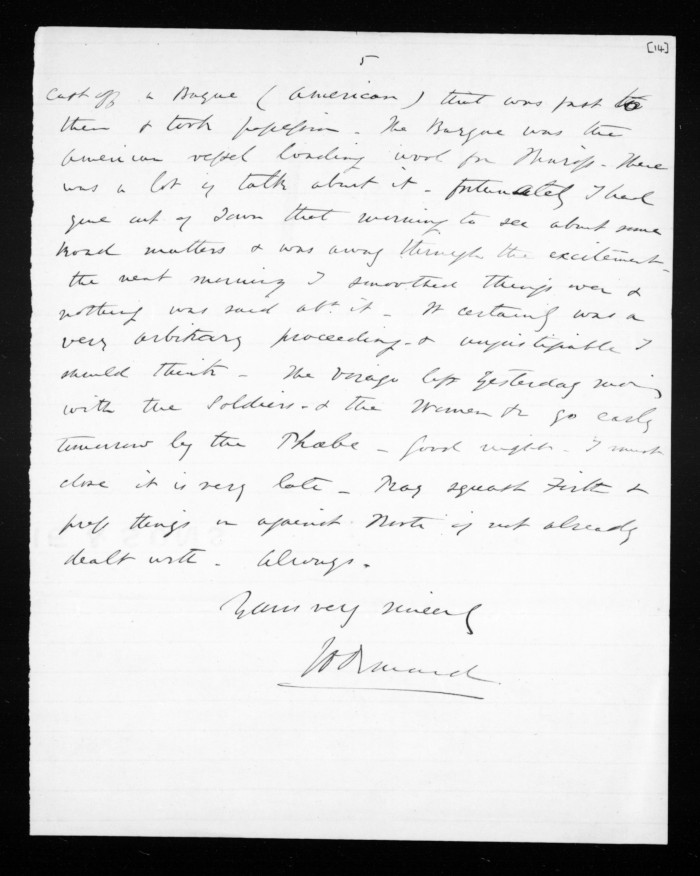 [14]
5
cast off a Barque (American) that was fast to
them & took possession - The Barque was the
American vessel loading wool for Thorif. There
was a lot of talk about it - fortunately I had
gone out of Town that morning to see about some
Road matters & was away through the excitement -
the next morning I smoothed things over &
nothing was said abt. it - It certainly was a
very arbitrary proceeding - & unjustifiable I
should think - The Virago left Yesterday
with the Soldiers - & the Women &c go early
tomorrow by the Phœbe - Good night - I must
close it is very late - Pray squash Firth &
press things on against North if not already
dealt with - Always.
Yours very sincerely
Ormond